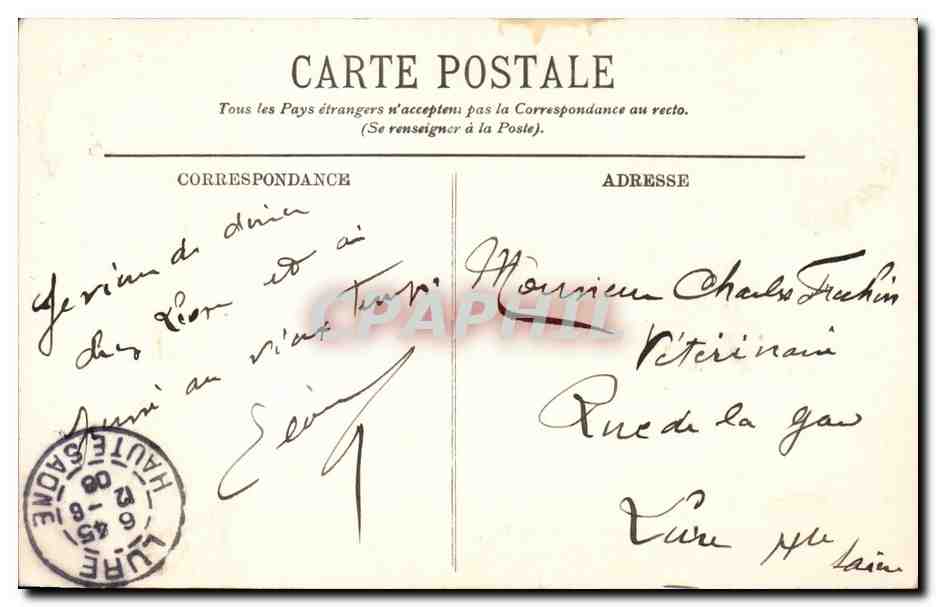 CARTE POSTALE
Tous les Pays étrangers n'acceptent pas la Correspondance au recto.
(Se renseigner à la Poste).
CORRESPONDANCE
ADRESSE
Je viens de dîner
chez Léon et ai
au vieux temps
Monsieur Charles
Vétérinaire
Rue de la gare
Lure Hte
Saône
CPAPHIL
LURE
HAUTE SAONE
8-45
6-12
08